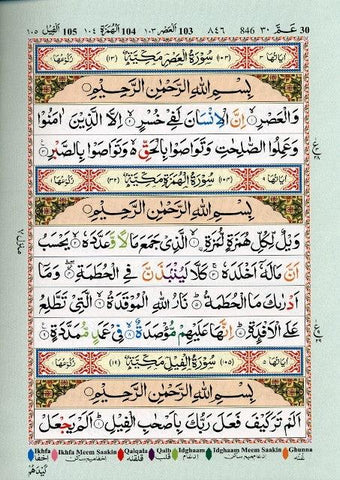 ٣٠ عَـمَّ 30 846 ٨٤٦ العَصر ١٠٣ 103 الهُمَزَة ١٠٤ 104 الفِيل ١٠٥ 105
اٰيَاتُهَا ٣ (١٠٣) سُوْرَةُ الْعَصْرِ مَكِّيَّةٌ (١٣) رُكُوْعُهَا ١
بِسْمِ اللّٰهِ الرَّحْمٰنِ الرَّحِيْمِ
وَالْعَصْرِ ۙ‏﴿۱﴾ اِنَّ الْاِنْسَانَ لَفِىْ خُسْرٍ ۙ‏﴿۲﴾ اِلَّا الَّذِيْنَ اٰمَنُوْا
وَعَمِلُوا الصّٰلِحٰتِ وَتَوَاصَوْا بِالْحَقِّ ۙ وَتَوَاصَوْا بِالصَّبْرِ ﴿۳﴾
اٰيَاتُهَا ٩ (١٠٤) سُوْرَةُ الْهُمَزَةِ مَكِّيَّةٌ (٣٢) رُكُوْعُهَا ١
بِسْمِ اللّٰهِ الرَّحْمٰنِ الرَّحِيْمِ
وَيْلٌ لِّكُلِّ هُمَزَةٍ لُّمَزَةِ ۙ‏﴿۱﴾ اۨلَّذِىْ جَمَعَ مَالًا وَّعَدَّدَهٗ ۙ‏﴿۲﴾ يَحْسَبُ
اَنَّ مَالَهٗۤ اَخْلَدَهٗ ۚ‏﴿۳﴾ كَلَّا لَيُنْۢبَذَنَّ فِى الْحُطَمَةِ ۖ‏﴿۴﴾ وَمَاۤ
اَدْرٰىكَ مَا الْحُطَمَةُ ؕ‏﴿۵﴾ نَارُ اللّٰهِ الْمُوْقَدَةُ ۙ‏﴿۶﴾ الَّتِىْ تَطَّلِعُ
عَلَى الْاَفْـِٕدَةِ ؕ‏﴿۷﴾ اِنَّهَا عَلَيْهِمْ مُّؤْصَدَةٌ ۙ‏﴿۸﴾ فِىْ عَمَدٍ مُّمَدَّدَةٍ ﴿۹﴾
اٰيَاتُهَا ٥ (١٠٥) سُوْرَةُ الْفِيْلِ مَكِّيَّةٌ (١٩) رُكُوْعُهَا ١
بِسْمِ اللّٰهِ الرَّحْمٰنِ الرَّحِيْمِ
اَلَمْ تَرَ كَيْفَ فَعَلَ رَبُّكَ بِاَصْحٰبِ الْفِيْلِ ؕ‏﴿۱﴾ اَلَمْ يَجْعَلْ
Ikhfa Ikhfa Meem Saakin Qalqala Qalb Idghaam Idghaam Meem Saakin Ghunna
اخفا اخفا میم ساکن قلقله قلب ادغام ادغام میم ساکن غنه